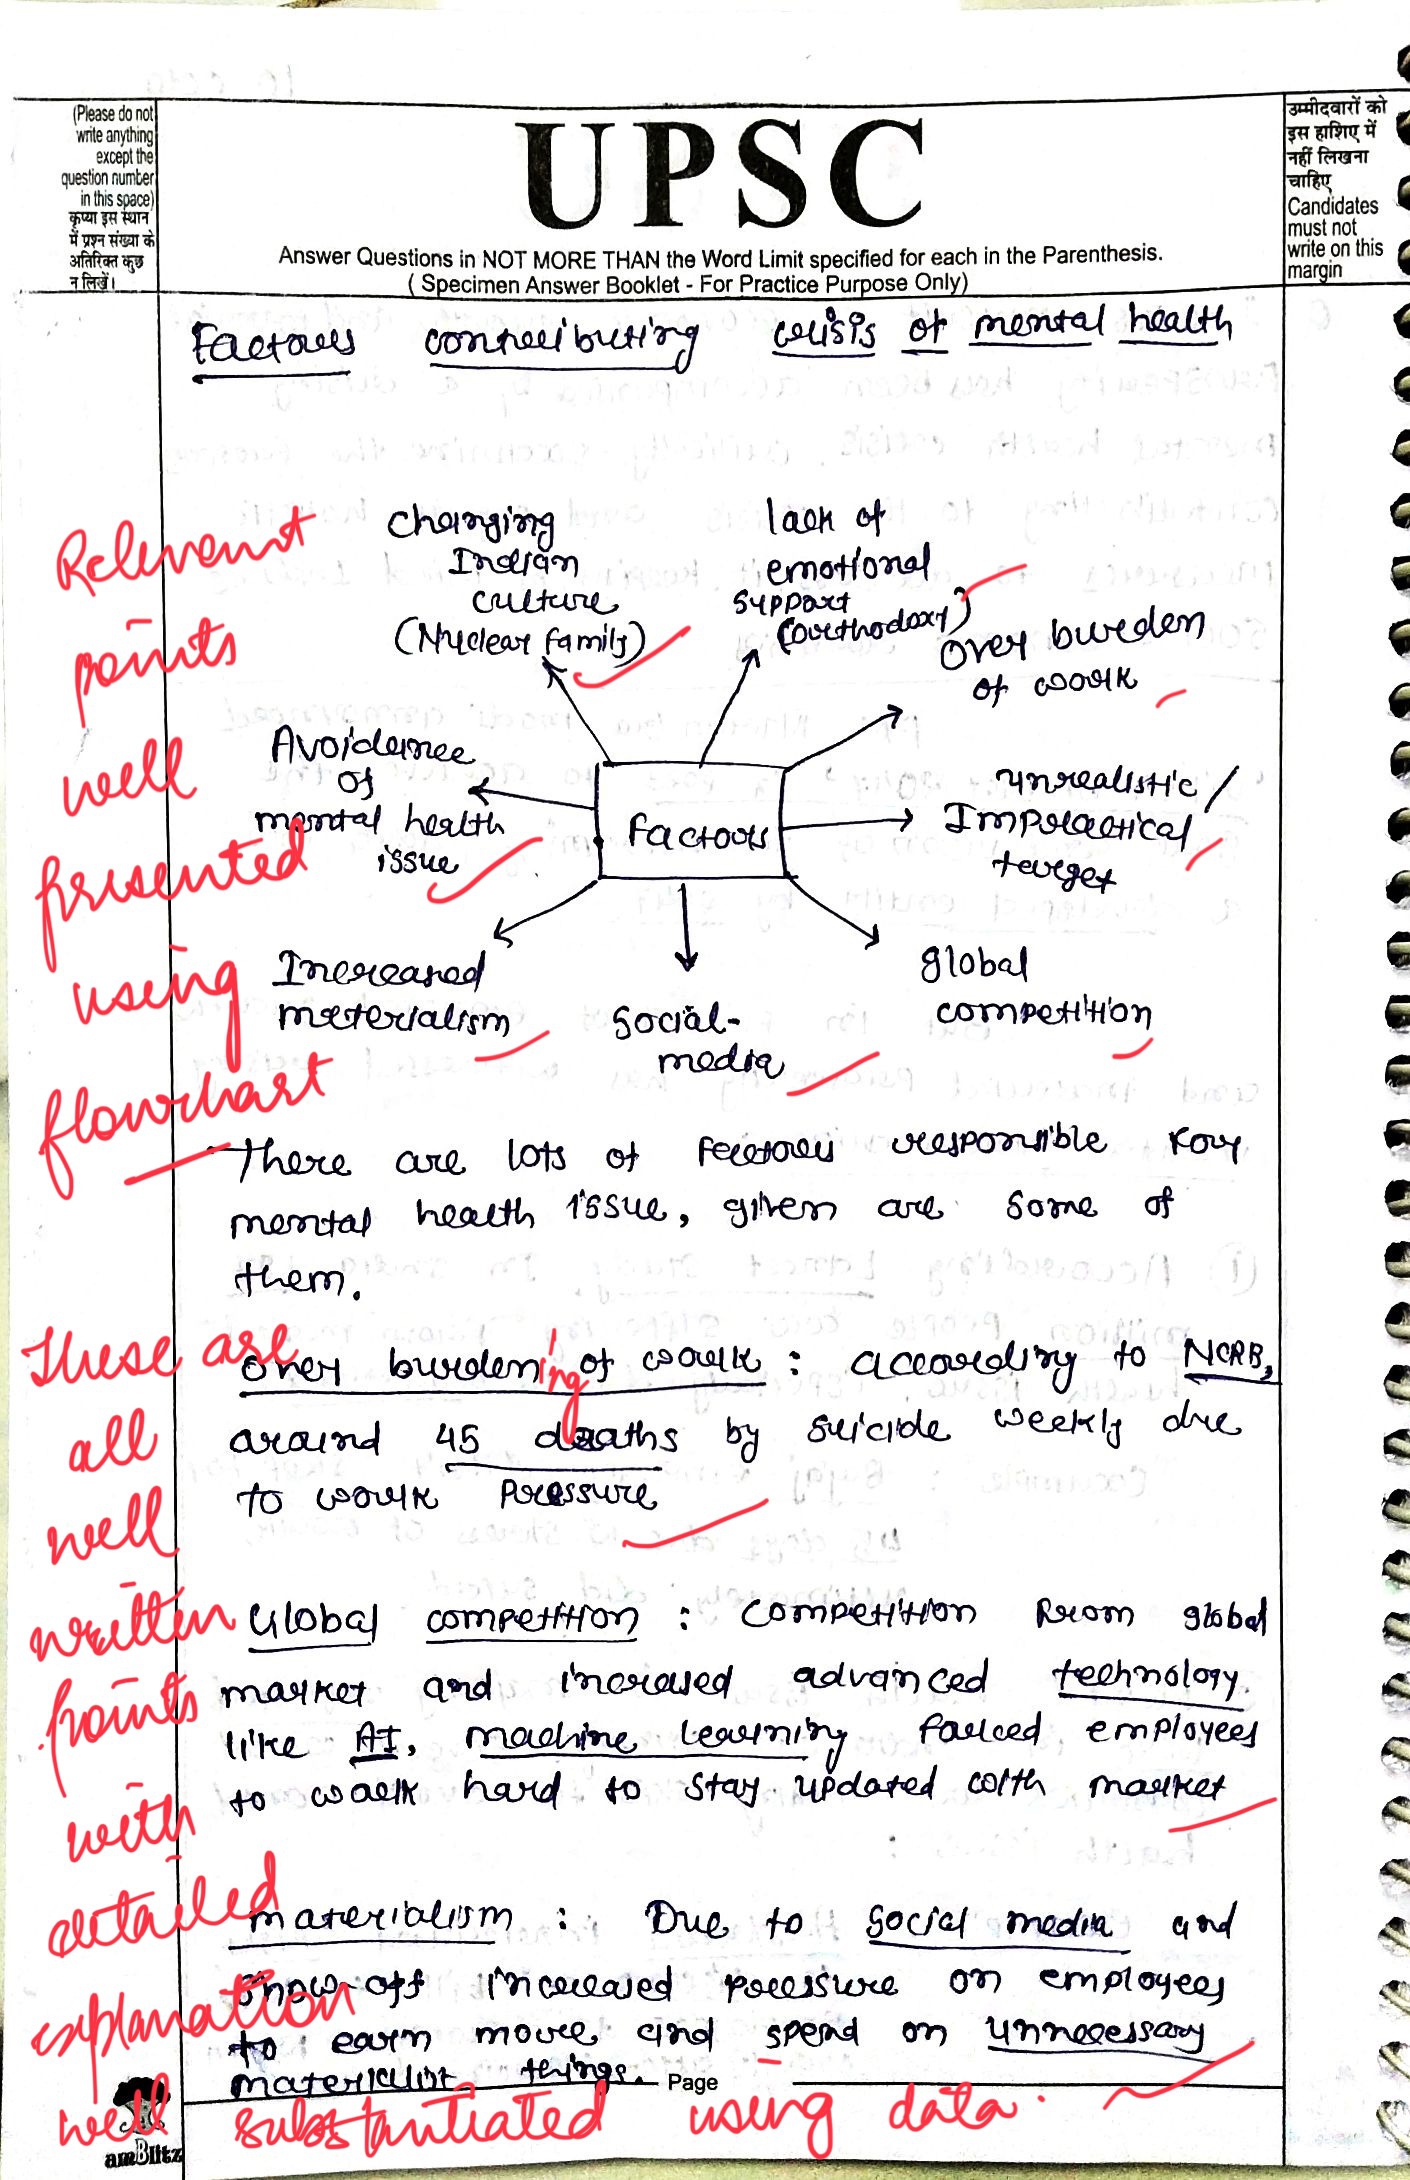 (Please do not
write anything
except the
question number
in this space)
कृप्या इस स्थान
में प्रश्न संख्या के
अतिरिक्त कुछ
न लिखें।
UPSC
Answer Questions in NOT MORE THAN the Word Limit specified for each in the Parenthesis.
( Specimen Answer Booklet - For Practice Purpose Only)
उम्मीदवारों को
इस हाशिए में
नहीं लिखना
चाहिए
Candidates
must not
write on this
margin
Factors contributing crisis of mental health
Changing
Indian
culture
(Nuclear family)
lack of
emotional
support
(orthodoxy)
Over burden
of work
unrealistic /
Impractical
target
global
competition
Social-
media
Increased
materialism
Avoidance
of
mental health
issue
Factors
Relevant
points
well
presented
using
flowchart
There are lots of factors responsible for
mental health issue, given are some of
them.
Over burdening of work : according to NCRB,
around 45 deaths by suicide weekly due
to work pressure
Global competition : competition from global
market and increased advanced technology
like AI, machine learning forced employees
to work hard to stay updated with market
materialism : Due to social media and
show-off increased pressure on employees
to earn more and spend on unnecessary
materialist things.
These are
all
well
written
points
with
detailed
explanation
well substantiated using data.
Page
amBlitz